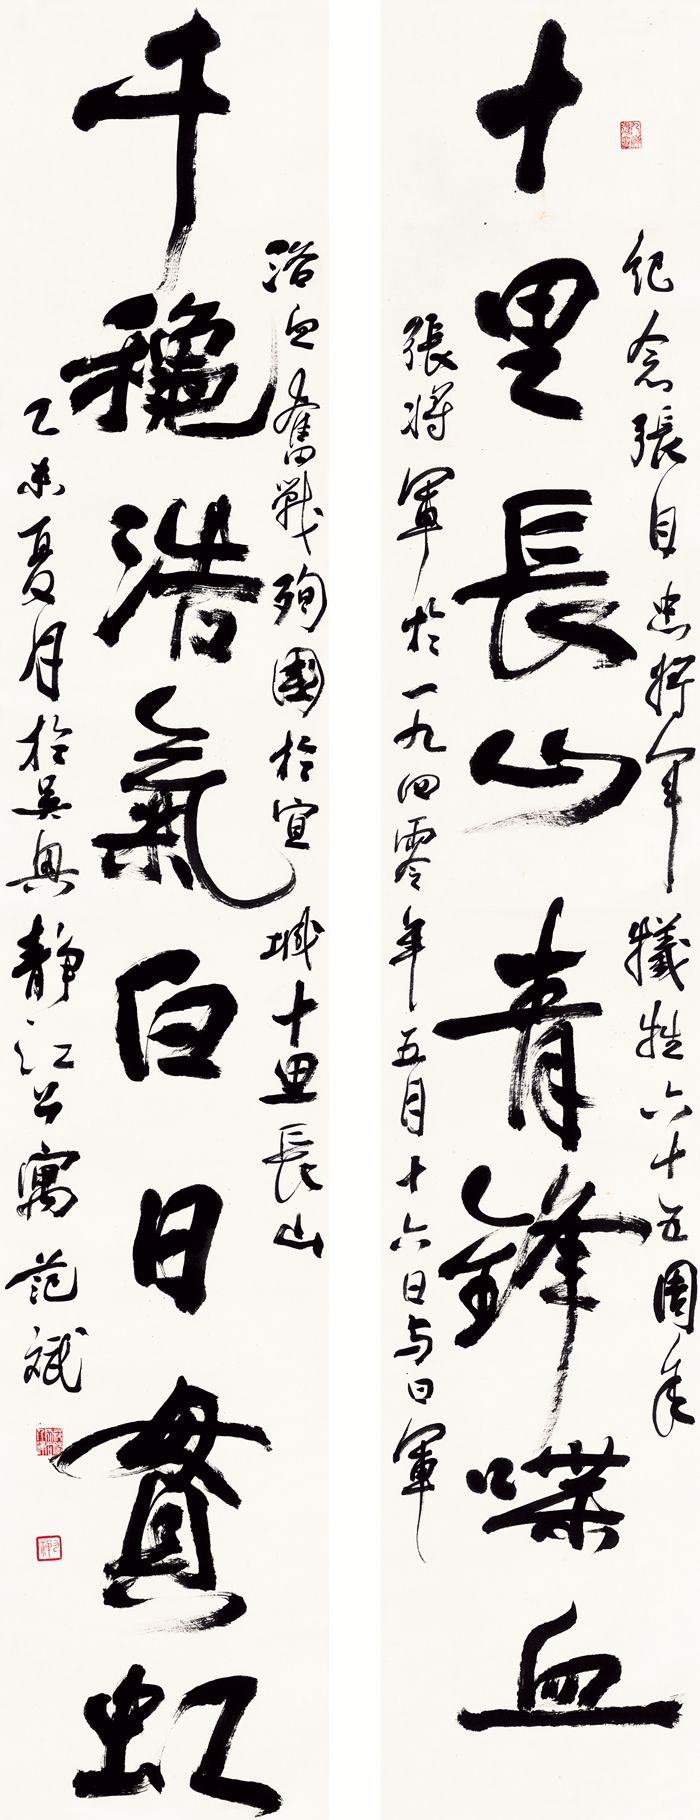 十里長山青鋒喋血
紀念張自忠將軍犧牲六十五周年
張将軍於一九四零年五月十六日与日軍
千穐浩氣白日貫虹
浴血奮戰殉國於宜城十里長山
乙未夏月於吳興靜江公寓范斌